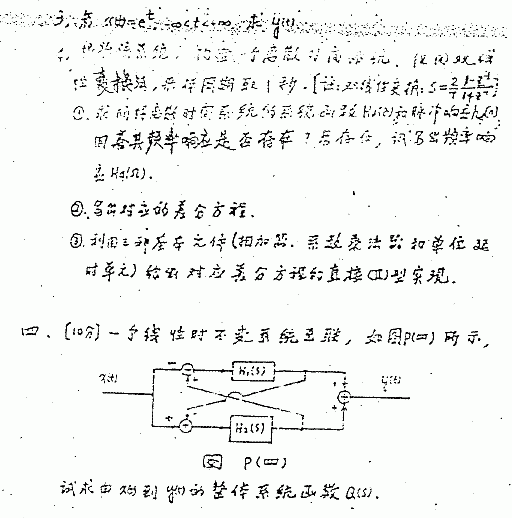 3. 若 x(t)=e^t, -∞<t<∞ 求 y(t).
性变换法, 采样周期取1秒. [注:双线性变换: S=2/T 1-z^-1/1+z^-1]
① 求的离散时间系统的系统函数 H₂(z)和脉冲响应h₂(n)
问其频率响应是否存在? 若存在, 试写出频率响
应 Hd(Ω).
② 写出对应的差分方程.
③ 利用三种基本元件(相加器. 系数乘法器和单位延
时单元) 给出对应差分方程的直接(Ⅱ)型实现.
四. (10分) 一个线性时不变系统互联, 如图P(四) 所示,
x(t)
H₁(s)
y(t)
H₂(s)
图 P(四)
试求由x(t)到y(t)的整体系统函数 Q(s).